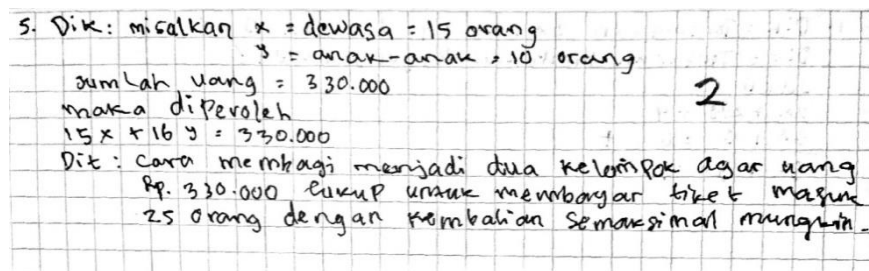 5. Dik: misalkan x = dewasa = 15 orang
y = anak-anak = 10 orang
Jumlah uang = 330.000
maka diperoleh
2
15x + 16y = 330.000
Dit: cara membagi menjadi dua kelompok agar uang
Rp. 330.000 cukup untuk membayar tiket masuk
25 orang dengan kembalian semaksimal mungkin.